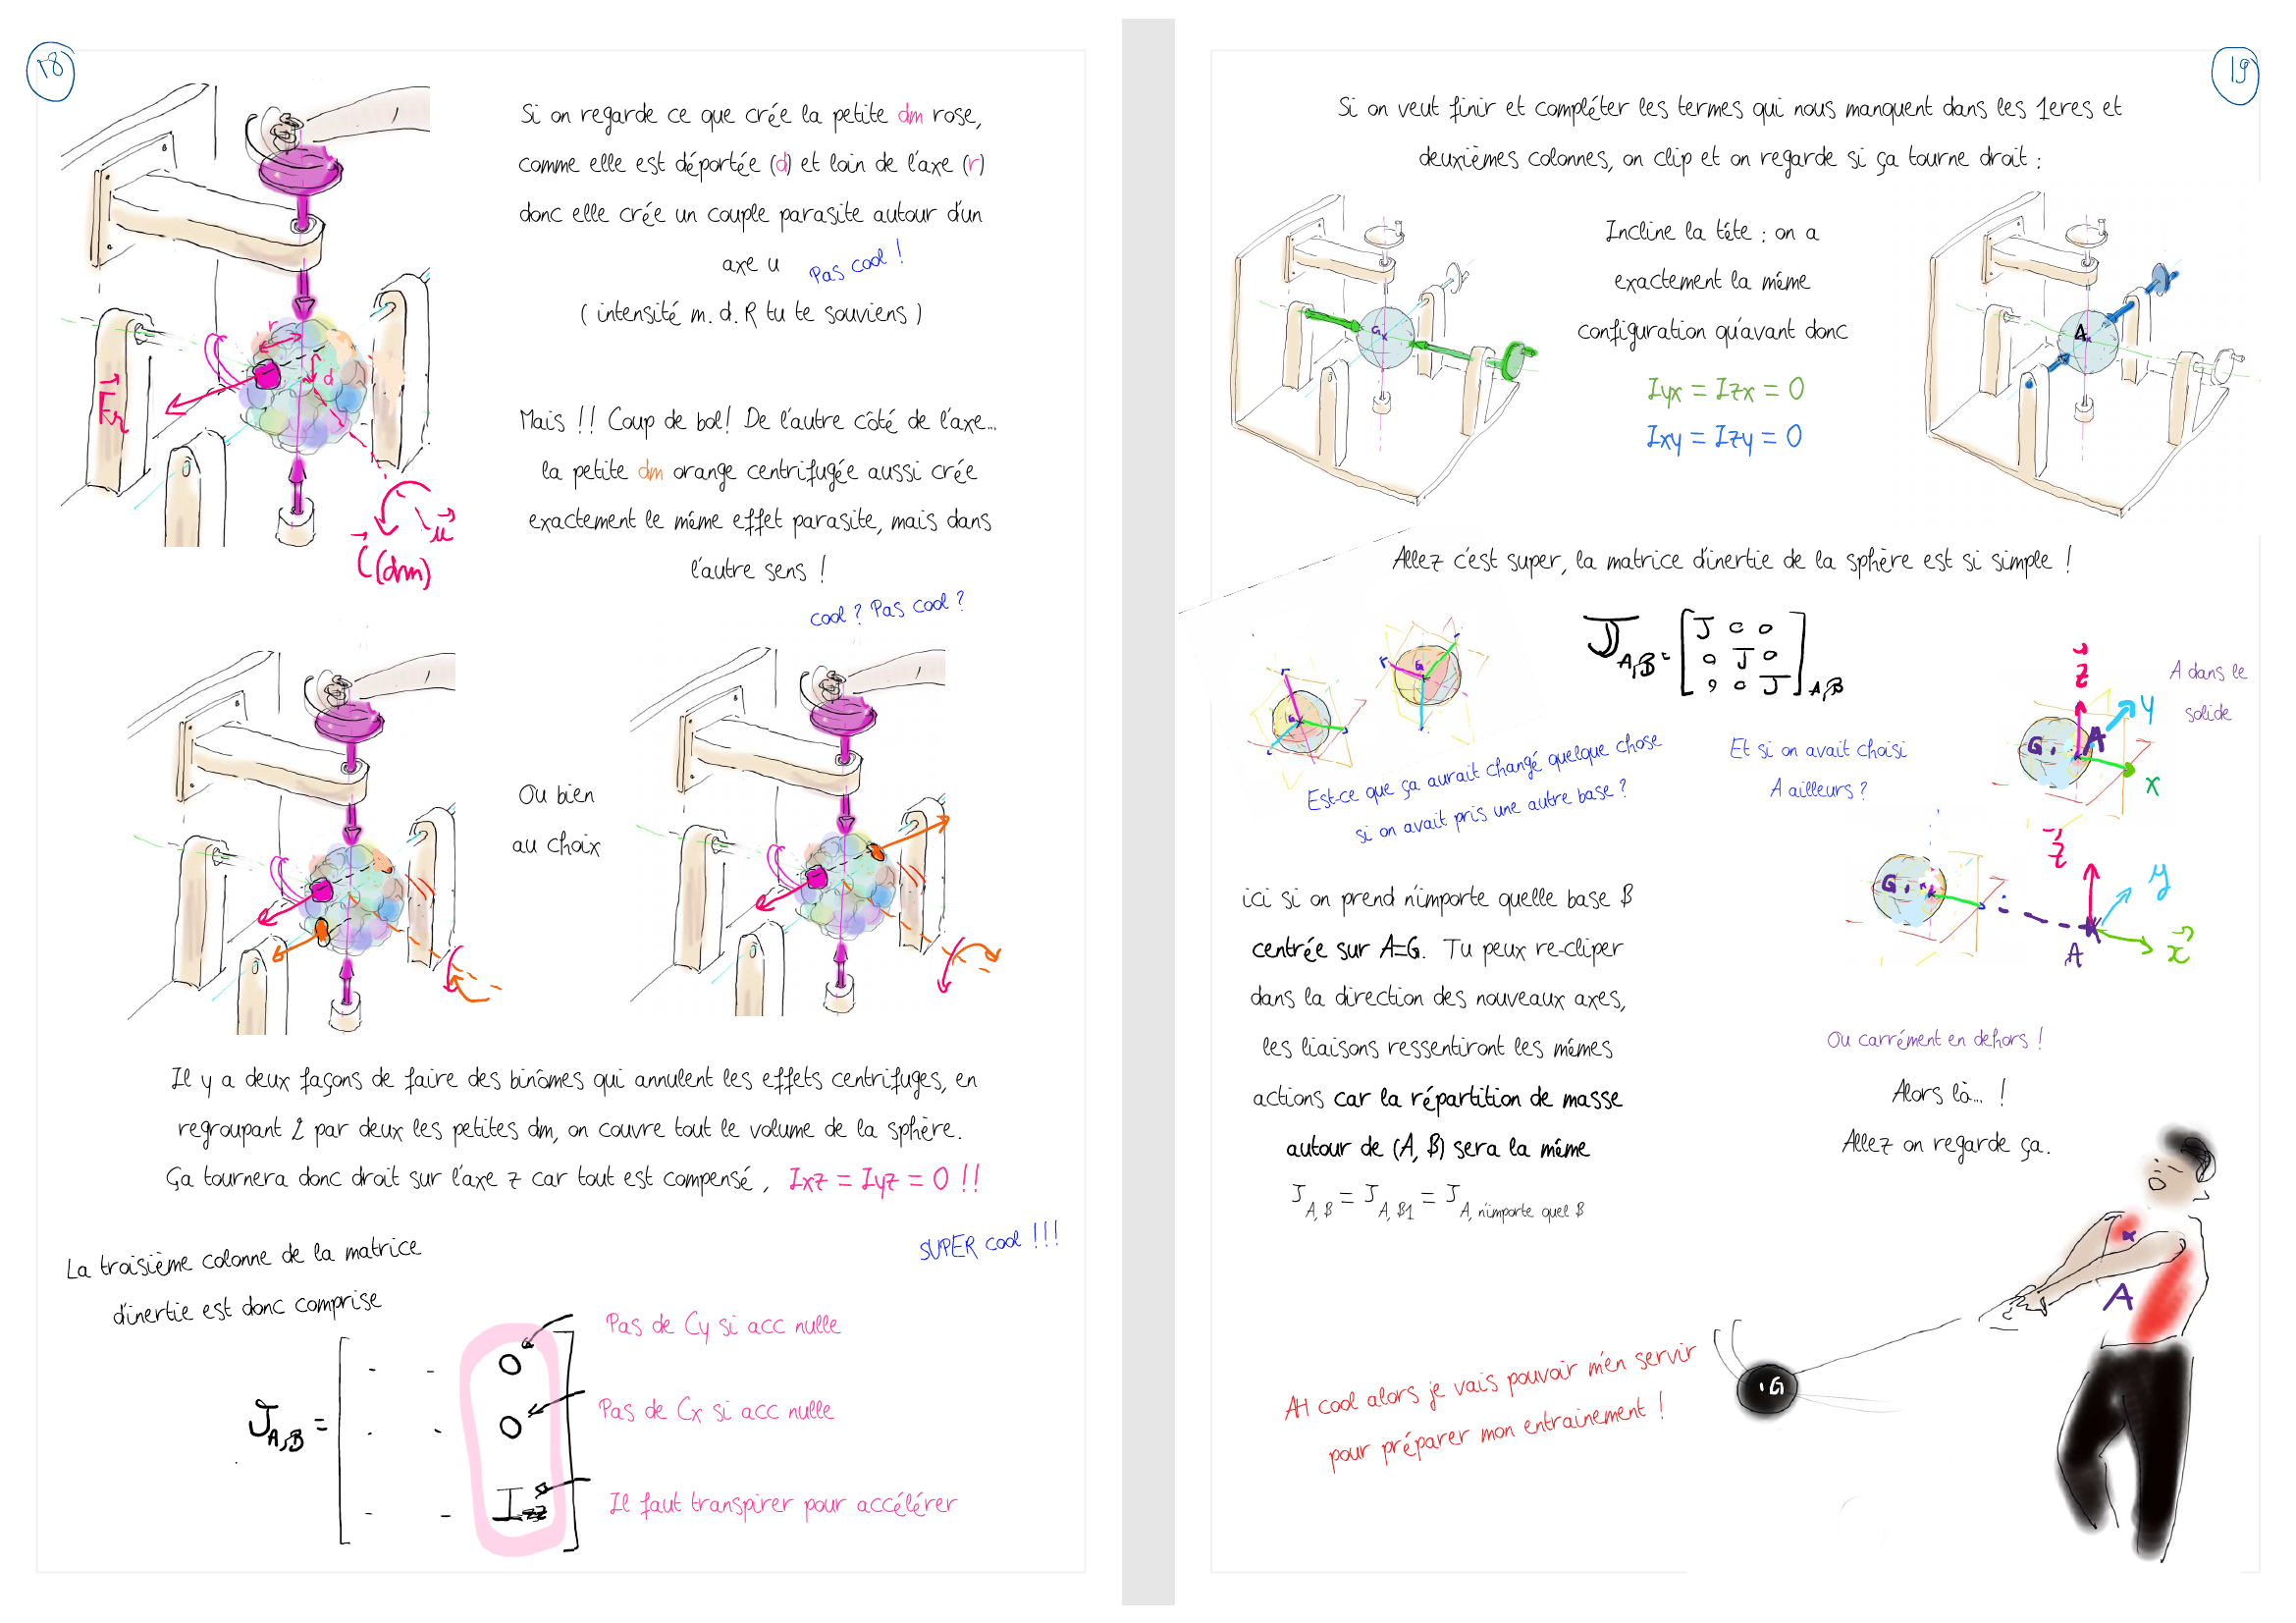 18
Si on regarde ce que crée la petite dm rose,
comme elle est déportée (d) et loin de l'axe (r)
donc elle crée un couple parasite autour d'un
axe u
Pas cool !
( intensité m. d. R tu te souviens )
r
d
Fr
u
C(dm)
Mais !! Coup de bol! De l'autre côté de l'axe...
la petite dm orange centrifugée aussi crée
exactement le même effet parasite, mais dans
l'autre sens !
cool ? Pas cool ?
Ou bien
au choix
Il y a deux façons de faire des binômes qui annulent les effets centrifuges, en
regroupant 2 par deux les petites dm, on couvre tout le volume de la sphère.
Ça tournera donc droit sur l'axe z car tout est compensé, Ixz = Iyz = 0 !!
SUPER cool !!!
La troisième colonne de la matrice
d'inertie est donc comprise
- - 0
J A,B = . . 0
- - Izz
Pas de Cy si acc nulle
Pas de Cx si acc nulle
Il faut transpirer pour accélérer
19
Si on veut finir et compléter les termes qui nous manquent dans les 1eres et
deuxièmes colonnes, on clip et on regarde si ça tourne droit :
G
Incline la tête : on a
exactement la même
configuration qu'avant donc
Iyx = Izx = 0
Ixy = Izy = 0
A
Allez c'est super, la matrice d'inertie de la sphère est si simple !
G
G
J A,B = [ J 0 0
0 J 0
0 0 J ] A,B
Est-ce que ça aurait changé quelque chose
si on avait pris une autre base ?
Et si on avait choisi
A ailleurs ?
A dans le
solide
z
y
G
A
x
z
y
G
A
x
ici si on prend n'importe quelle base B
centrée sur A=G. Tu peux re-cliper
dans la direction des nouveaux axes,
les liaisons ressentiront les mêmes
actions car la répartition de masse
autour de (A, B) sera la même
J A, B = J A, B1 = J A, n'importe quel B
Ou carrément en dehors !
Alors là... !
Allez on regarde ça.
A
G
AH cool alors je vais pouvoir m'en servir
pour préparer mon entrainement !